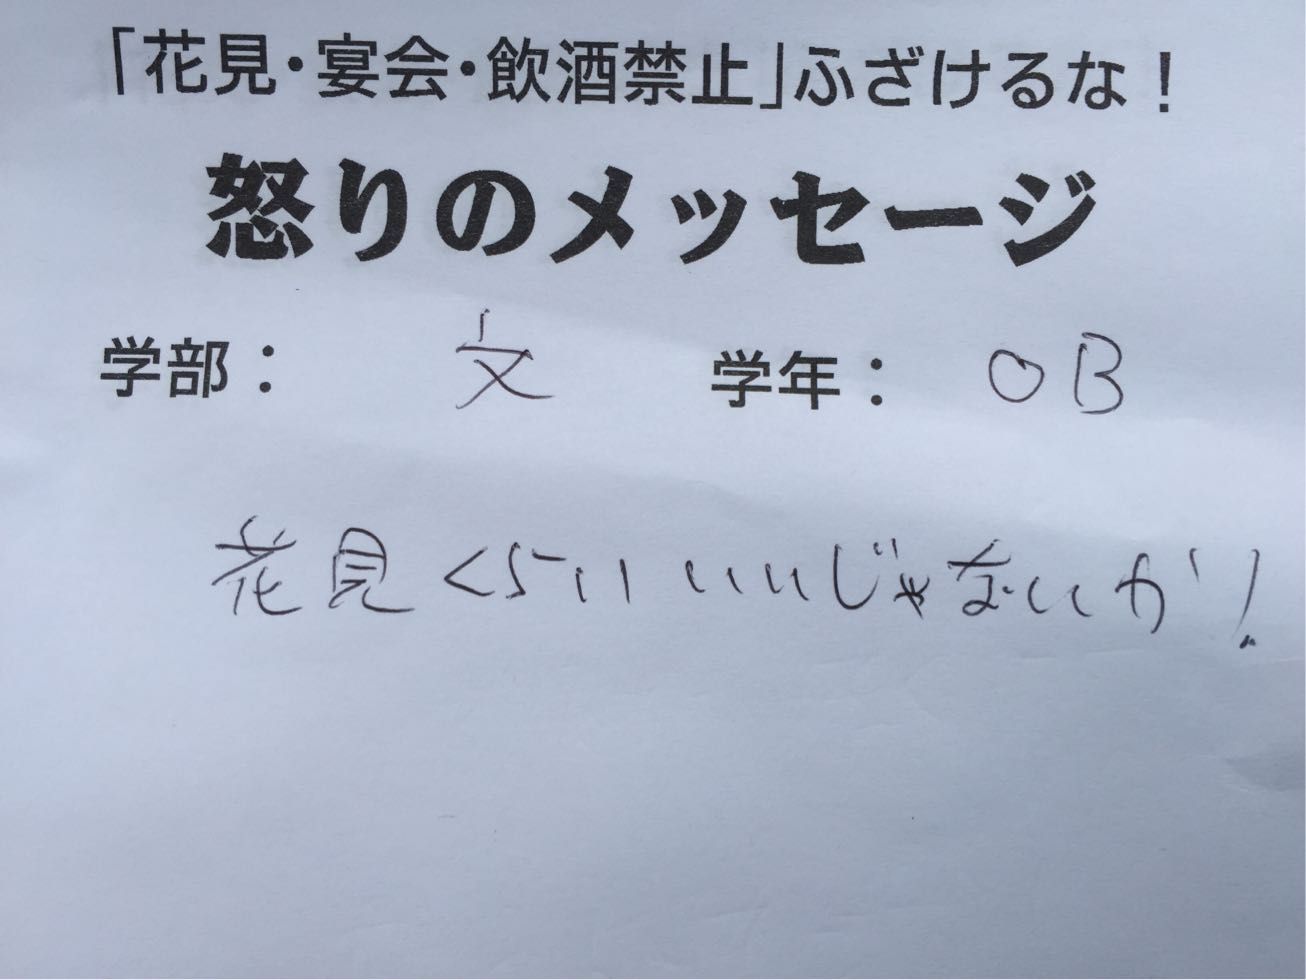 「花見・宴会・飲酒禁止」ふざけるな！
怒りのメッセージ
学部： 文 学年： OB
花見くらいいいじゃないか！